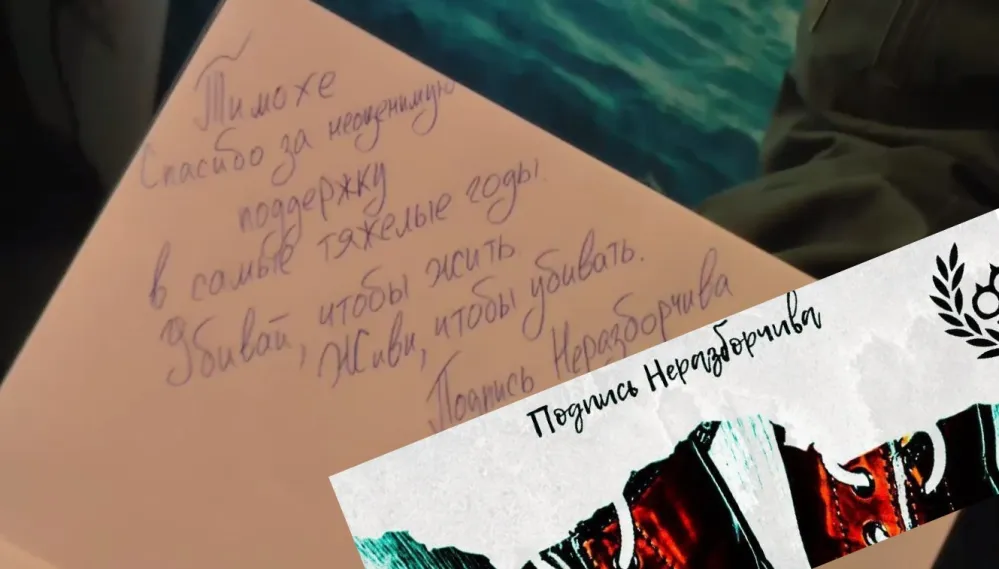 Тимохе
Спасибо за неоценимую
поддержку
в самые тяжелые годы.
Убивай, чтобы жить.
Живи, чтобы убивать.
Подпись Неразборчива
Подпись Неразборчива